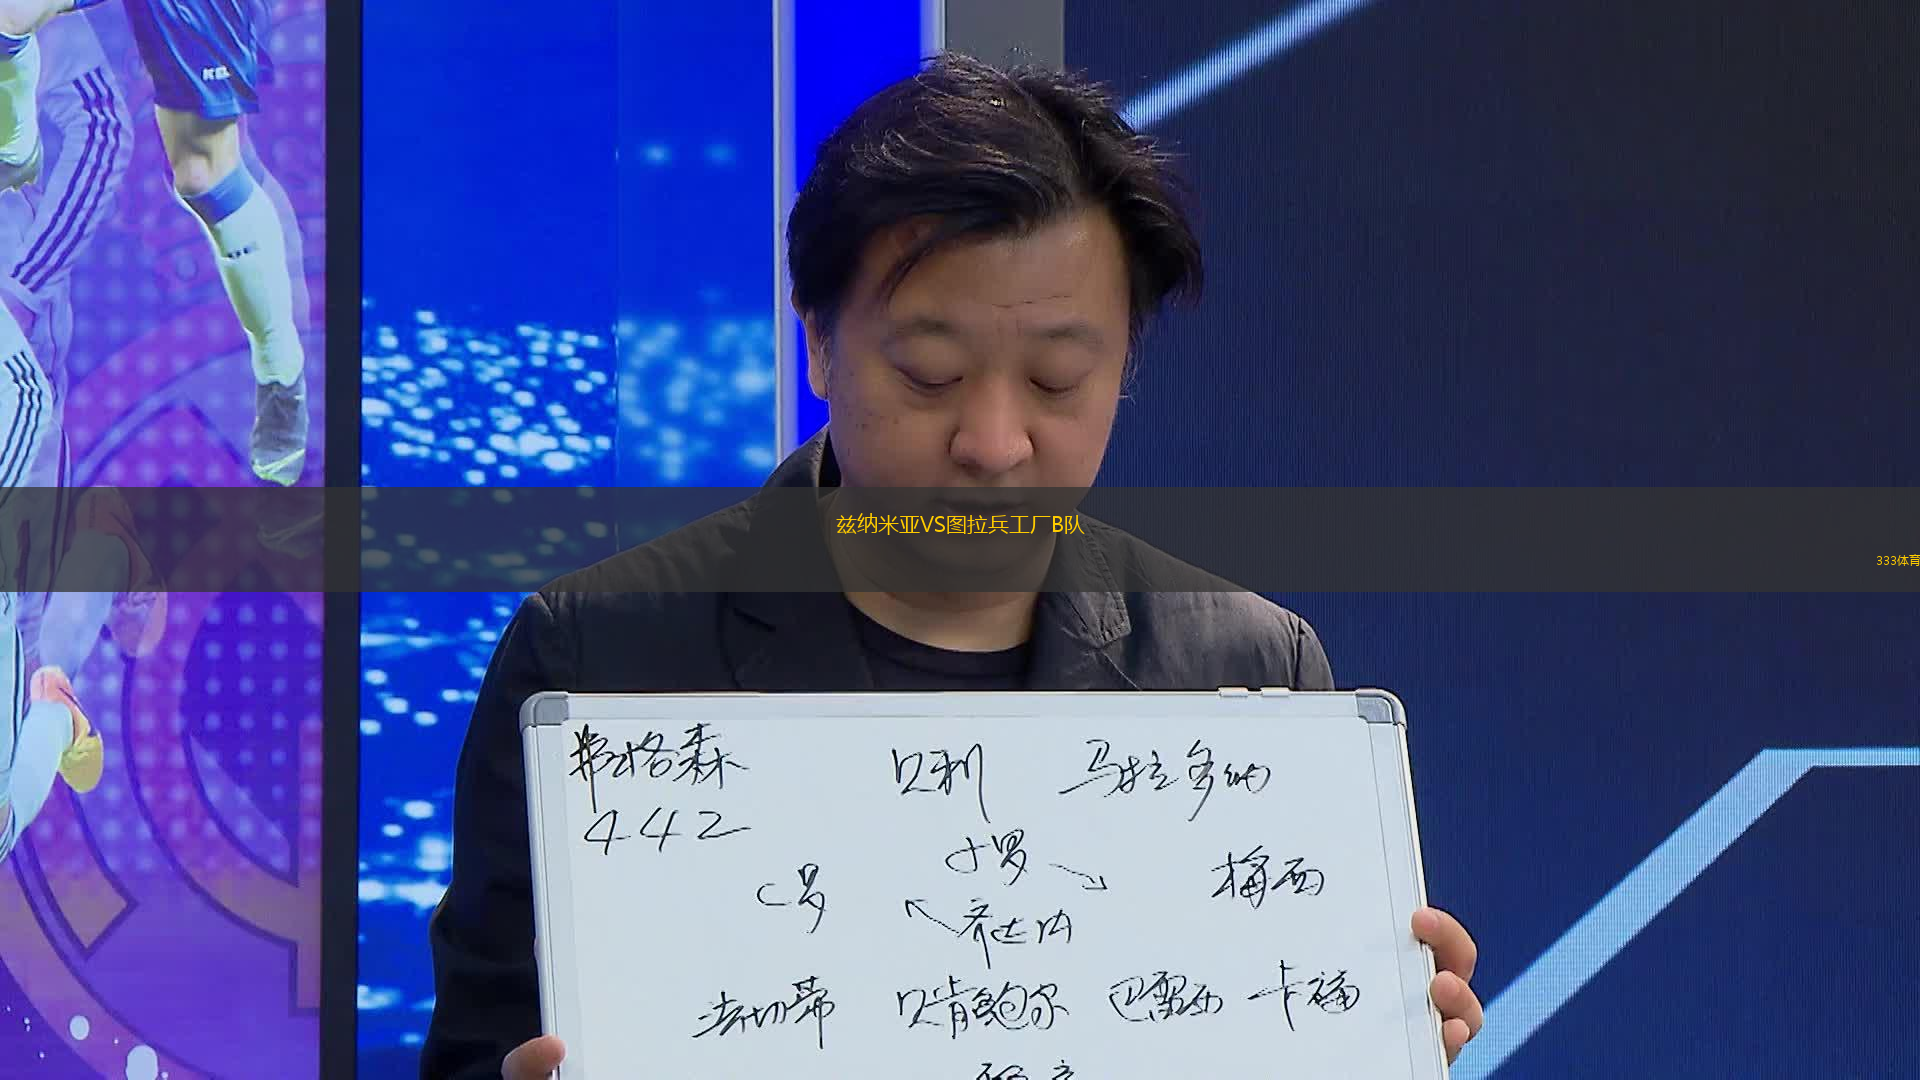 KE
兹纳米亚VS图拉兵工厂B队
333体育
弗格森 贝利 马拉多纳
442
小罗
C罗 梅西
齐达内
法切蒂 贝肯鲍尔 巴雷西 卡福